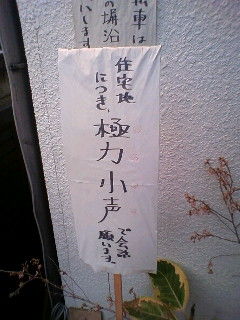 住宅地
につき、
極力小声
で会話
願います。
転車は
の塀沿
いします